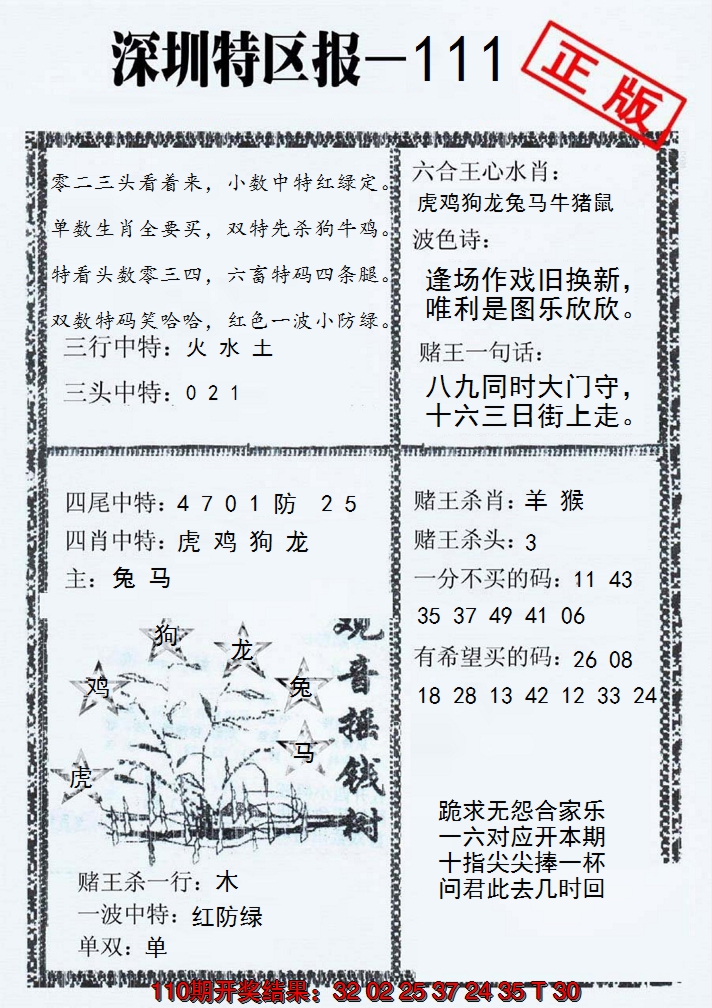 深圳特区报—111
正版
零二三头看着来，小数中特红绿定。
单数生肖全要买，双特先杀狗牛鸡。
特看头数零三四，六畜特码四条腿。
双数特码笑哈哈，红色一波小防绿。
三行中特：火 水 土
三头中特：0 2 1
六合王心水肖：
虎鸡狗龙兔马牛猪鼠
波色诗：
逢场作戏旧换新，
唯利是图乐欣欣。
赌王一句话：
八九同时大门守，
十六三日街上走。
四尾中特：4 7 0 1 防 2 5
四肖中特：虎 鸡 狗 龙
主：兔 马
观音摇钱树
狗
龙
鸡
兔
马
虎
赌王杀一行：木
一波中特：红防绿
单双：单
赌王杀肖：羊 猴
赌王杀头：3
一分不买的码：11 43
35 37 49 41 06
有希望买的码：26 08
18 28 13 42 12 33 24
跪求无怨合家乐
一六对应开本期
十指尖尖捧一杯
问君此去几时回
110期开奖结果：32 02 25 37 24 35 T 30